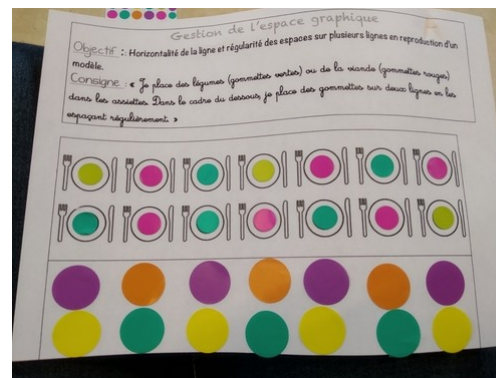 Gestion de l'espace graphique
Objectif : Horizontalité de la ligne et régularité des espaces sur plusieurs lignes en reproduction d'un
modèle.
Consigne : « Je place des légumes (gommettes vertes) ou de la viande (gommettes rouges)
dans les assiettes. Dans le cadre du dessous, je place des gommettes sur deux lignes en les
espaçant régulièrement. »